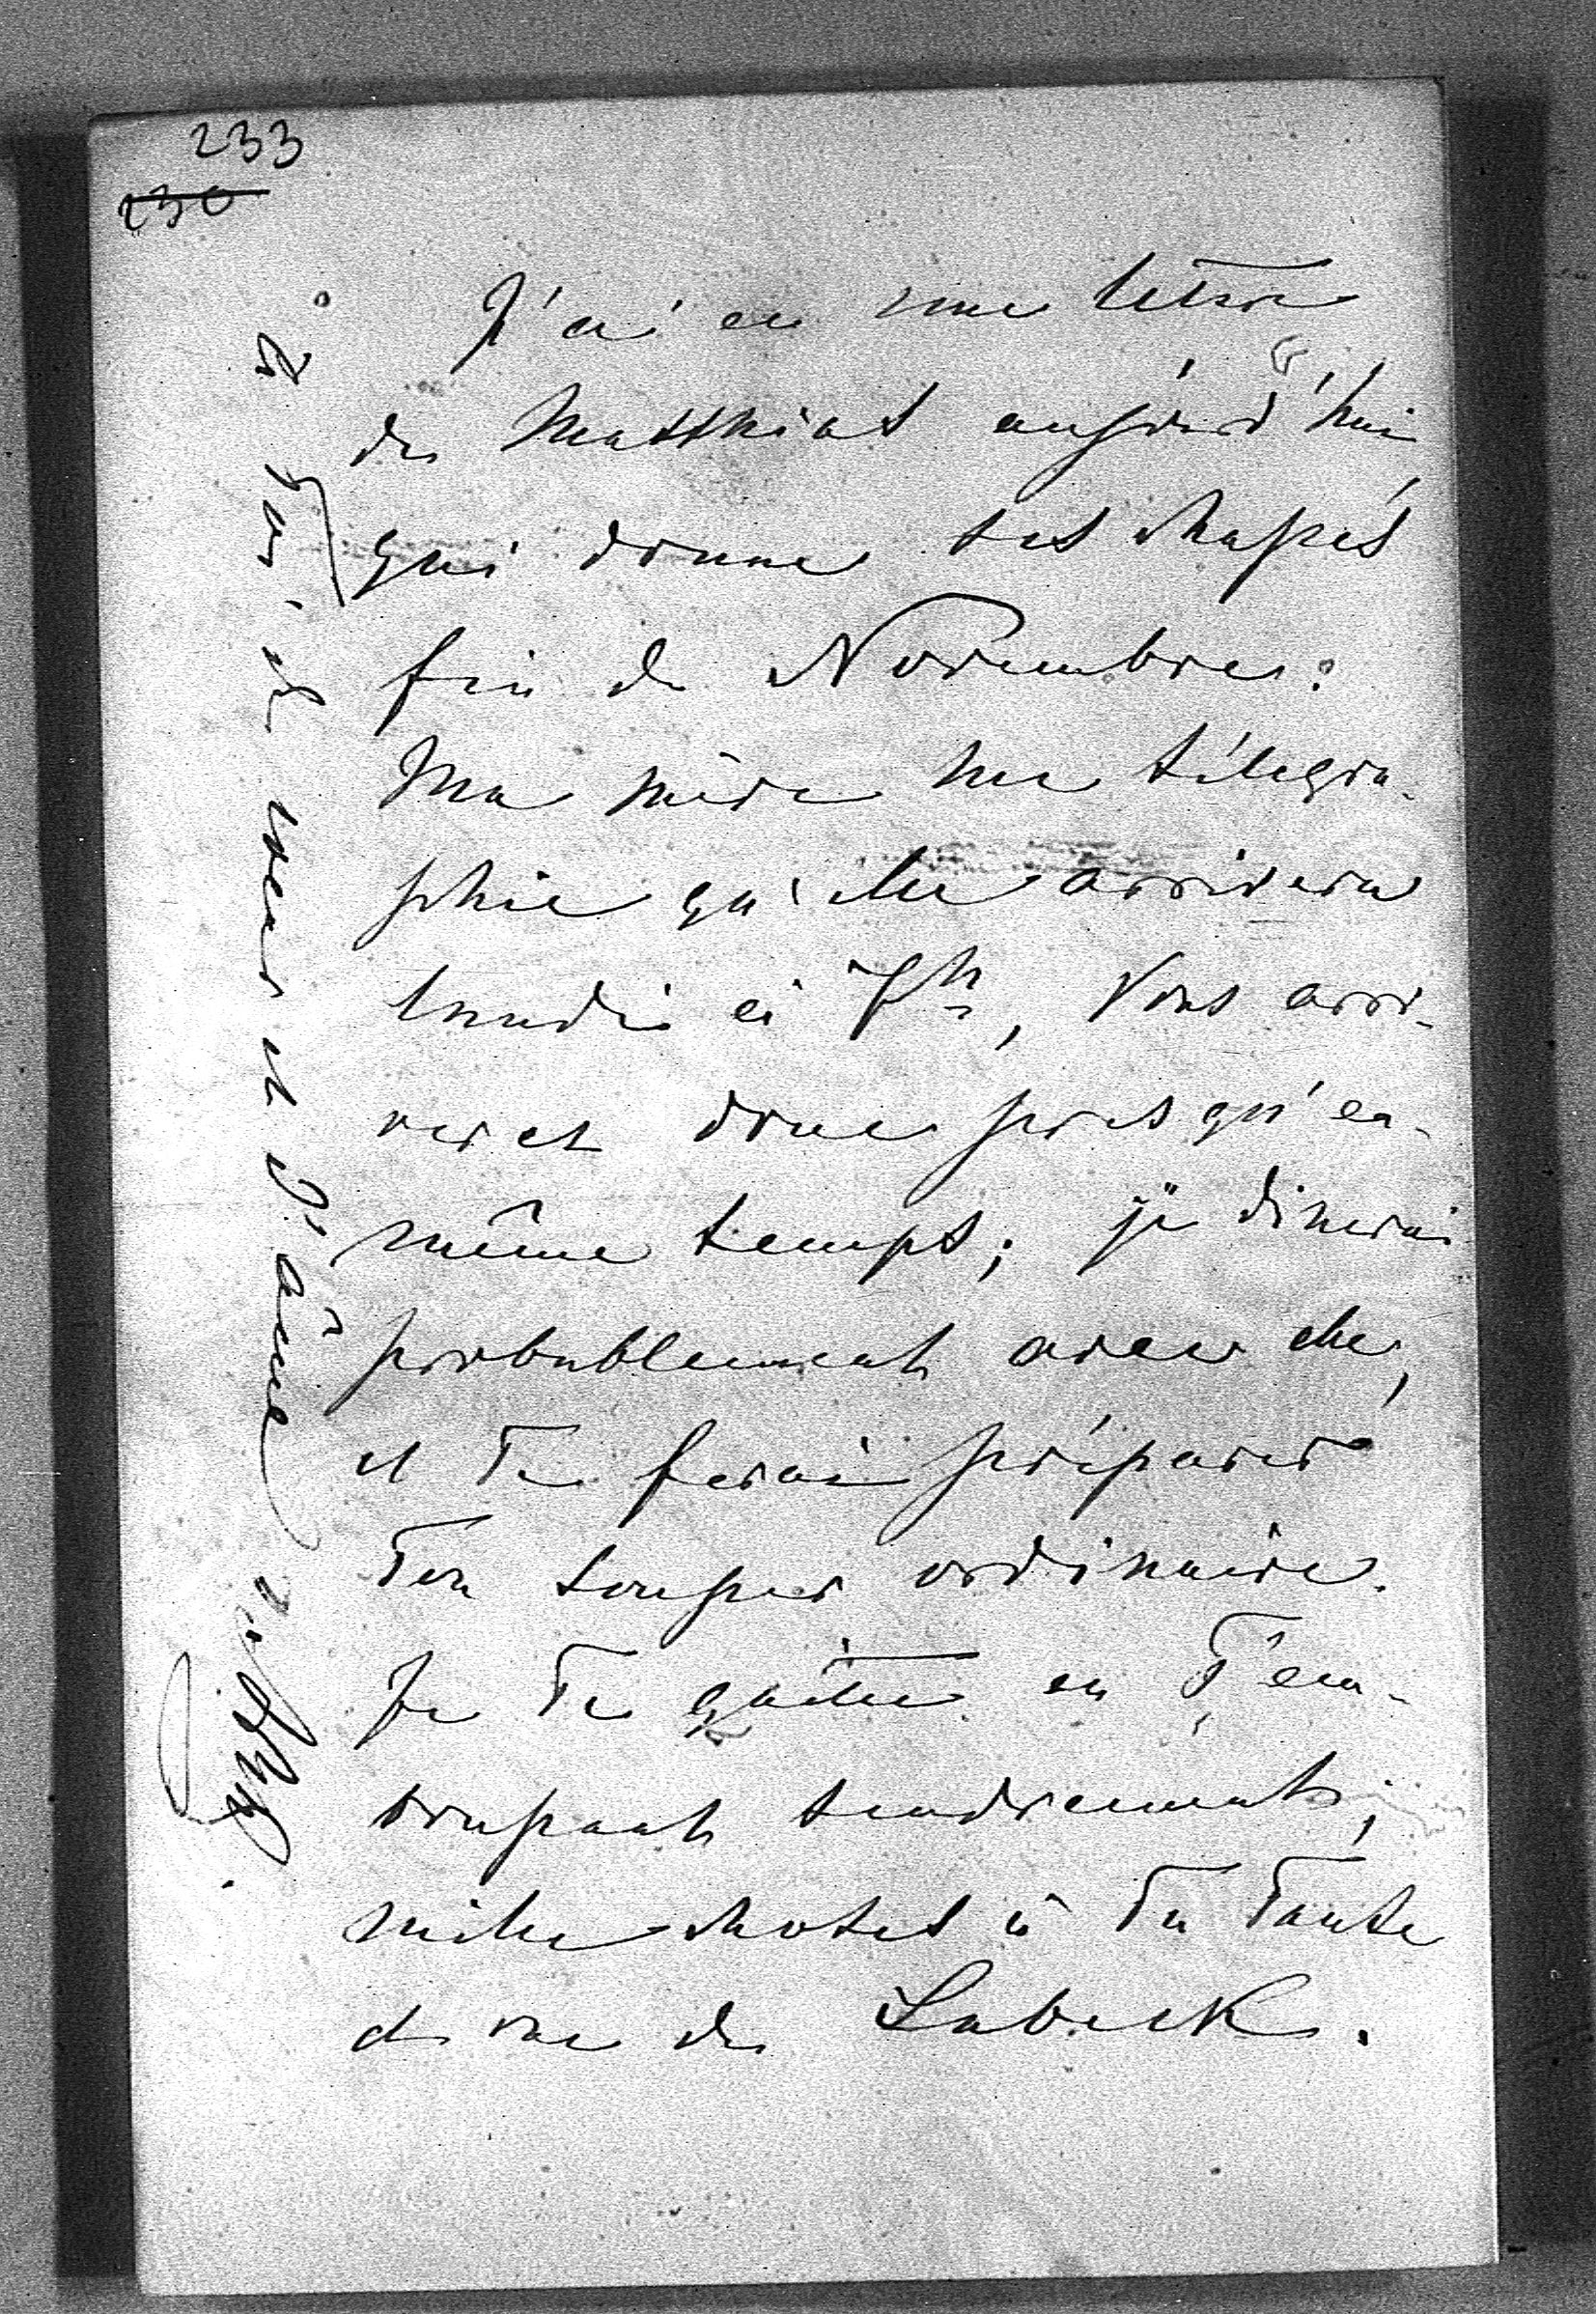 233
230
J'ai eu une lettre
de Matthias aujourd'hui
qui donne ses chasses
fin de Novembre.
Ma mère me télegra-
phie qu'elle arrivera
lundi à 7h, Vous arri-
verez donc presqu'en
même temps; je dinerai
probablement avec elle,
et Te ferai préparer
Ton souper ordinaire.
Je Te quitte en T'em-
brassant tendrement;
mille choses à Ta Tante
de rue de Lubeck.
à Toi, de cœur et d'âme